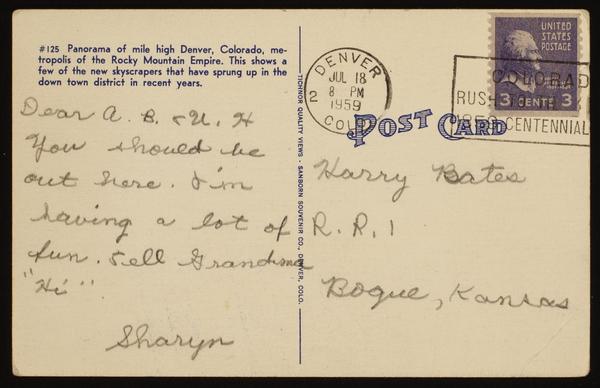 #125 Panorama of mile high Denver, Colorado, me-
tropolis of the Rocky Mountain Empire. This shows a
few of the new skyscrapers that have sprung up in the
down town district in recent years.
Dear A. B. & U. H
You should be
out here. I'm
having a lot of
fun. Tell Grandma
"Hi"
Sharyn
TICHNOR QUALITY VIEWS - SANBORN SOUVENIR CO., DENVER, COLO.
DENVER
JUL 18
8 PM
1959
2
COLO.
UNITED
STATES
POSTAGE
3 CENTS 3
COLORAD
RUSH
CENTENNIAL
POST CARD
Harry Bates
R. R. 1
Bogue, Kansas